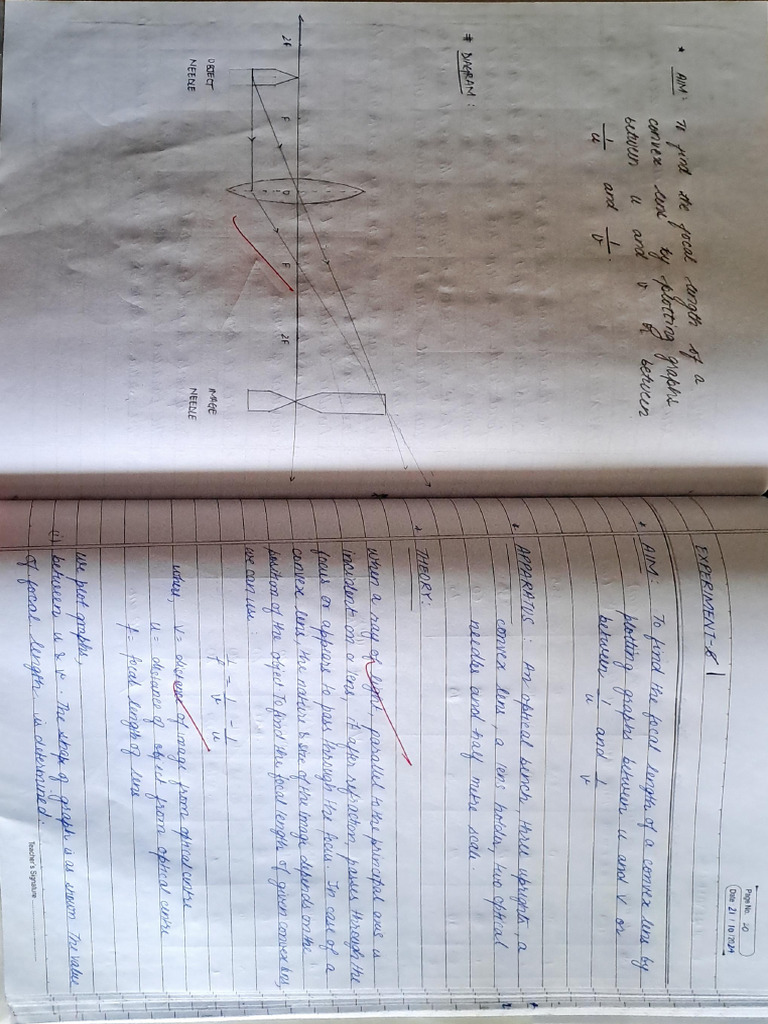 * AIM: To find the focal length of a
convex lens by plotting graphs
between u and v or between
1/u and 1/v.
# DIAGRAM:
2F
F
O
F
2F
OBJECT
NEEDLE
IMAGE
NEEDLE
Page No. 20
Date 21/10/2024
EXPERIMENT-8
* AIM: To find the focal length of a convex lens by
plotting graphs between u and v or
between 1/u and 1/v
* APPARATUS: An optical bench, three uprights, a
convex lens, a lens holder, two optical
needles and half metre scale
* THEORY:
When a ray of light, parallel to the principal axis is
incident on a lens, it after refraction, passes through the
focus or appears to pass through the focus. In case of a
convex lens, the nature & size of the image depends on the
position of the object. To find the focal length of given convex lens,
we can use:
1/f = 1/v - 1/u
where, v = distance of image from optical centre
u = distance of object from optical centre
f = focal length of lens
We plot graphs,
(i) between u & v. The shape of graph is as shown. The value
of focal length is determined.
Teacher's Signature